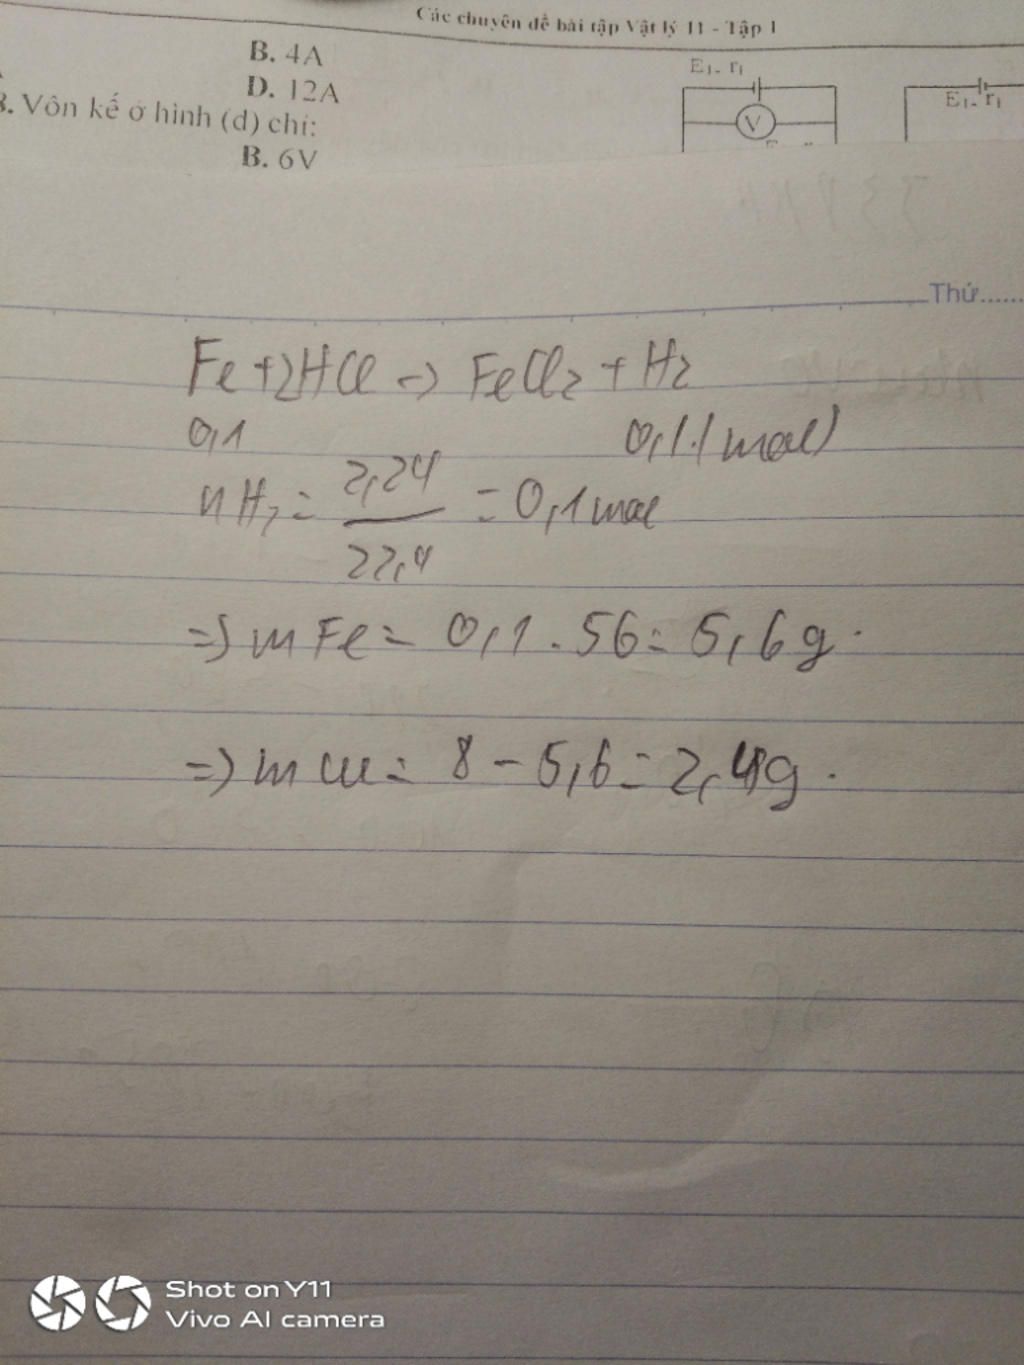 Các chuyên đề bài tập Vật lý 11 - Tập 1
B. 4A
D. 12A
3. Vôn kế ở hình (d) chỉ:
B. 6V
E₁, r₁
V
E₁, r₁
Thứ......
Fe + 2HCl => FeCl₂ + H₂
0,1 0,1 (mol)
nH₂ = 2,24 / 22,4 = 0,1 mol
=> mFe = 0,1 . 56 = 5,6g.
=> mCu = 8 - 5,6 = 2,4g.
Shot on Y11
Vivo AI camera